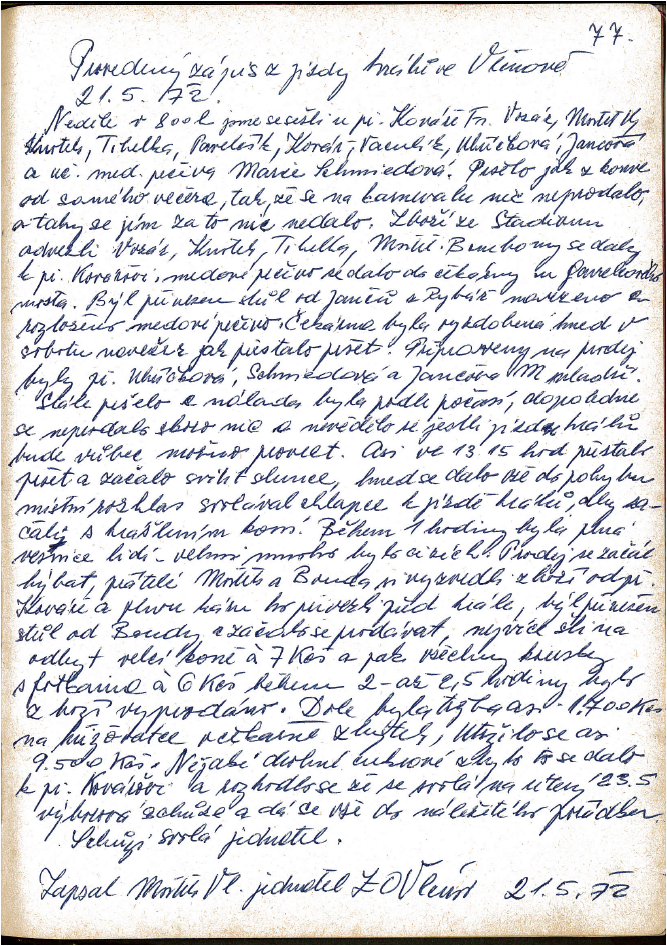 77.
Provedený zápis z jízdy králů ve Vlčnově
21.5.72.
Neděle v 8ool jsme se sešli u př. Kováře Fr. Vozár, Mošťek Vl,
Knotek, Tihelka, Pavelčík, Kovář, Vaculík, Uhříčková, Jančová
a uč. med. pečiva Marie Schmiedová. Pršelo jak z konve
od samého večera, tak, že se na karnevalu nic neprodalo,
a tahy se jim za to nic nedalo. Zboží ze Stadionu
odvezli Vozár, Knotek, Tihelka, Mošť. Bonbony se daly
k př. Kovářovi. medové pečivo se dalo do čekárny u
mosta. Byl přinesen stůl od Jančů a Rybář navezeno a
rozloženo medové pečivo. Čekárna byla vyzdobená hned v
sobotu navečer jak přestalo pršet. Připraveny na prodej
byly př. Uhříčková, Schmiedová a Jančova M mladší.
Stále pršelo a nálada byla podle počasí, dopoledne
se neprodalo skoro nic a nevědělo se jestli jízda králů
bude vůbec možno provést. Asi ve 13.15 hod přestalo
pršet a začalo svítit slunce, hned se dalo vše do pohybu
místní rozhlas svolával chlapce k jízdě králů, aby za-
čali s krášlením koní. Během 1 hodiny byla plná
vesnice lidí - velmi mnoho bylo cizích. Prodej se začal
hýbat, přátelé Mošťek a Bouda si vyzvedli zboží od př.
Kováře a znovu nám ho přivezli před krále, byl přinesen
stůl od Boudy a začalo se prodávat, nejvíce šli na
odbyt velcí koně à 7 Kčs a pak všechny kousky
s fotkama à 6 Kčs během 2 - až 2,5 hodiny bylo
zboží vyprodáno. Dole byla tržba asi 1.700 Kčs
na křižovatce veškarné zbytek, Utržilo se asi
9.500 Kčs. Nějaké drobné cukroví zbylo to se dalo
k př. Kovářovi a rozhodlo se že se svolá na úterý 23.5
výborová schůze a dá se vše do náležitého pořádku.
Schůzi svolá jednatel.
Zapsal Mošťek Vl. jednatel ZO Vlčnov 21.5.72